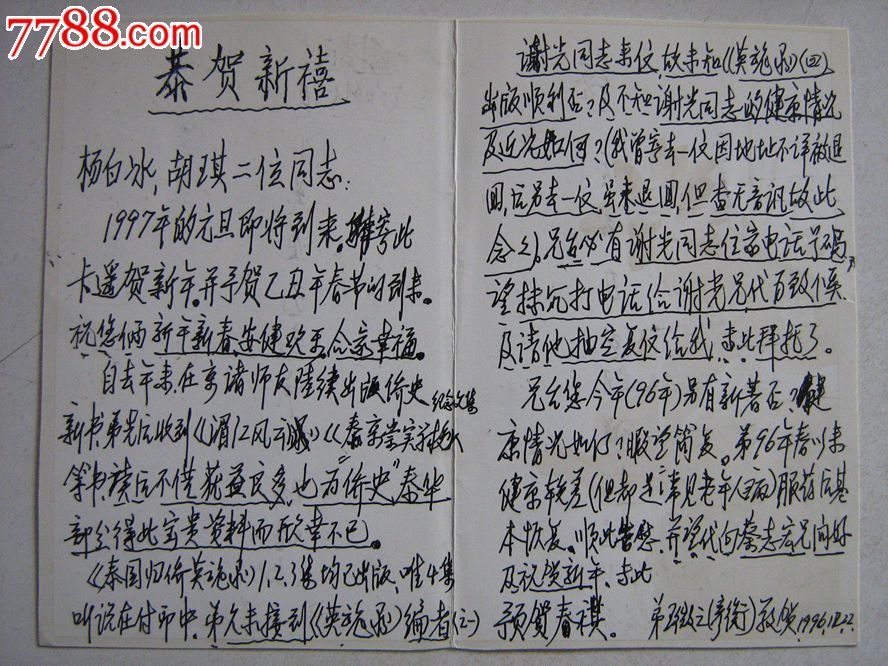 7788.com
恭贺新禧
杨白冰,胡琪二位同志:
1997年的元旦即将到来。特寄此
卡遥贺新年。并予贺乙丑年春节的到来。
祝您俩新年新春,安健欢乐,合家幸福。
自去年来,在京诸师友陆续出版侨史
纪念文集
新书,弟先后收到《湄江风云》《泰京崇实学校》
等书,读后不倦,获益良多,也为“侨史”泰华
部分得此宝贵资料而欣幸不已。
《泰国归侨英魂录》1.2.3集均已出版,唯4集
叫说在付印中。弟久未接到《英魂录》编者(之一)
谢光同志来信,故未知《英魂录》(四)
出版顺利否?及不知谢光同志的健康情况
及近况如何?(我曾寄去一信因地址不详被退
回,后另去一信,虽未退回,但杳无音讯故此
念之)。兄台必有谢光同志住家电话号码,
望抹冗打电话给谢光兄代为致候,
及请他抽空复信给我,专此拜托了。
兄台您今年(96年)另有新著否?健
康情况如何?暇望简复。弟96年春以来
健康较差(但都是常见老年人病)服药后基
本恢复。顺此告慰。并望代向蔡志宏兄问好
及祝贺新年。专此
预贺春祺。 弟 敬贺 1996.12.22.